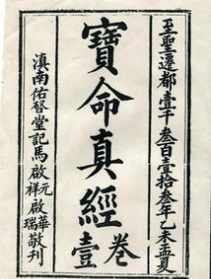 至聖遷都壹千叁百壹拾叁年乙未孟夏
寶命真經卷壹
滇南佑督堂記馬啟元祥啟華瑞敬刊